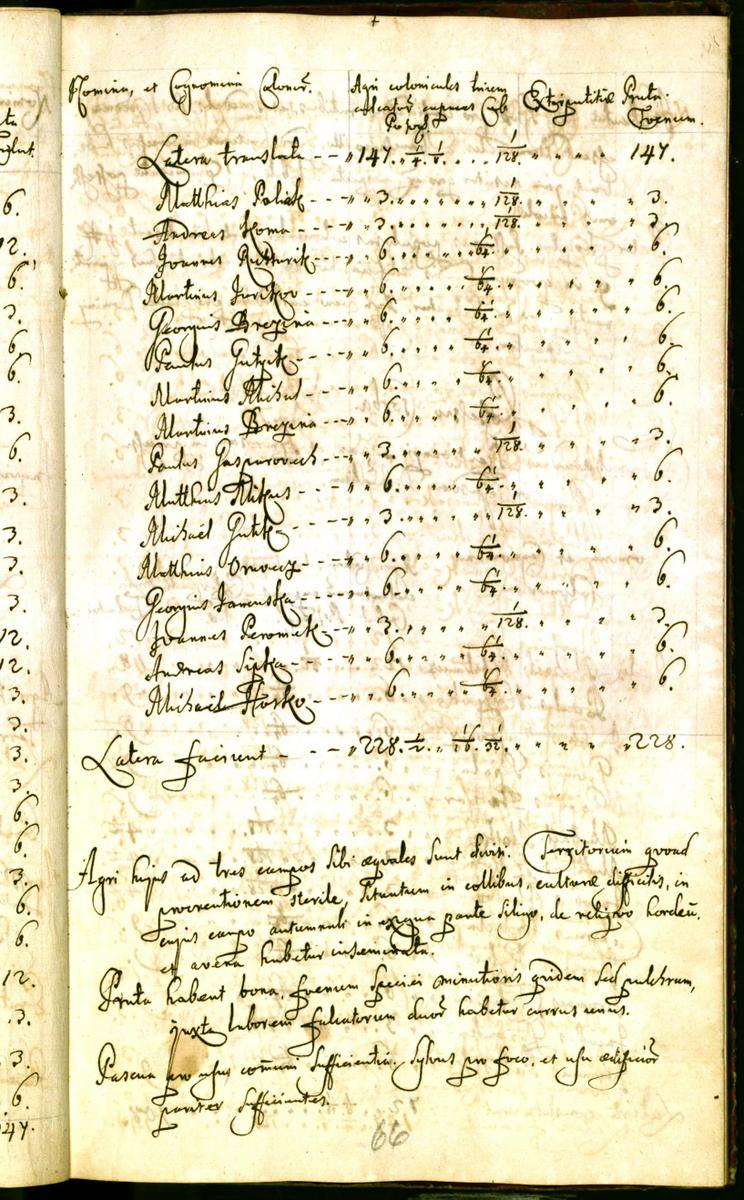 Nomina, et Cognomina Colonor.
Agri coloniculis
Extirpatitiæ
Prata
Foenum.
Latera translata - - „ 147. „ 1/4. 1/8. . . . 1/128. „ „ „ „ 147.
Matthias Poliak - - - „ „ 3. „ „ „ „ „ 1/128. „ „ „ „ 3.
Andreas Koma - - - „ „ 3. „ „ „ „ „ 1/128. „ „ „ „ 3.
Joannes - - „ „ 6. „ „ „ „ 1/64. „ „ „ „ 6.
Martinus Jurikov - - - „ „ 6. „ „ „ „ 1/64. „ „ „ „ 6.
Georgius Brezina - - - „ „ 6. „ „ „ „ 1/64. „ „ „ „ 6.
Paulus - - - „ „ 6. „ „ „ „ 1/64. „ „ „ „ 6.
Martinus Michal - - - „ „ 6. „ „ „ „ 1/64. „ „ „ „ 6.
Martinus Brezina - - - „ „ 6. „ „ „ „ 1/64. „ „ „ „ 6.
Paulus Gasparovech - - - „ „ 3. „ „ „ „ „ 1/128. „ „ „ „ 3.
Matthias Mikus - - - „ „ 6. „ „ „ „ 1/64. „ „ „ „ 6.
Michaël - - - „ „ 3. „ „ „ „ „ 1/128. „ „ „ „ 3.
Matthias - - - „ „ 6. „ „ „ „ 1/64. „ „ „ „ 6.
Georgius Januska - - - „ „ 6. „ „ „ „ 1/64. „ „ „ „ 6.
Joannes - - - „ „ 3. „ „ „ „ „ 1/128. „ „ „ „ 3.
Andreas Sipka - - - „ „ 6. „ „ „ „ 1/64. „ „ „ „ 6.
Michaël Horko - - - „ „ 6. „ „ „ „ 1/64. „ „ „ „ 6.
Latera faciunt - - - „ 228. 1/2. „ 1/16. 1/32. „ „ „ „ „ 228.
Agri hujus ad tres campos sibi æquales sunt divisi. Territorium quoad
procreationem sterile, situatum in collibus, culturæ difficilis, in
cujus campo autumnali in exigua parte siligo, de reliquo hordeũ.
et avena habetur inseminata.
Prata habent bona, foenum speciei minutioris quidem sed pulchrum,
juxta laborem falcatorum duor habetur currus unus.
Pascua pro usu com̃uni sufficientia. Sylvas pro foco, et usu ædificior
pariter sufficientes.
66